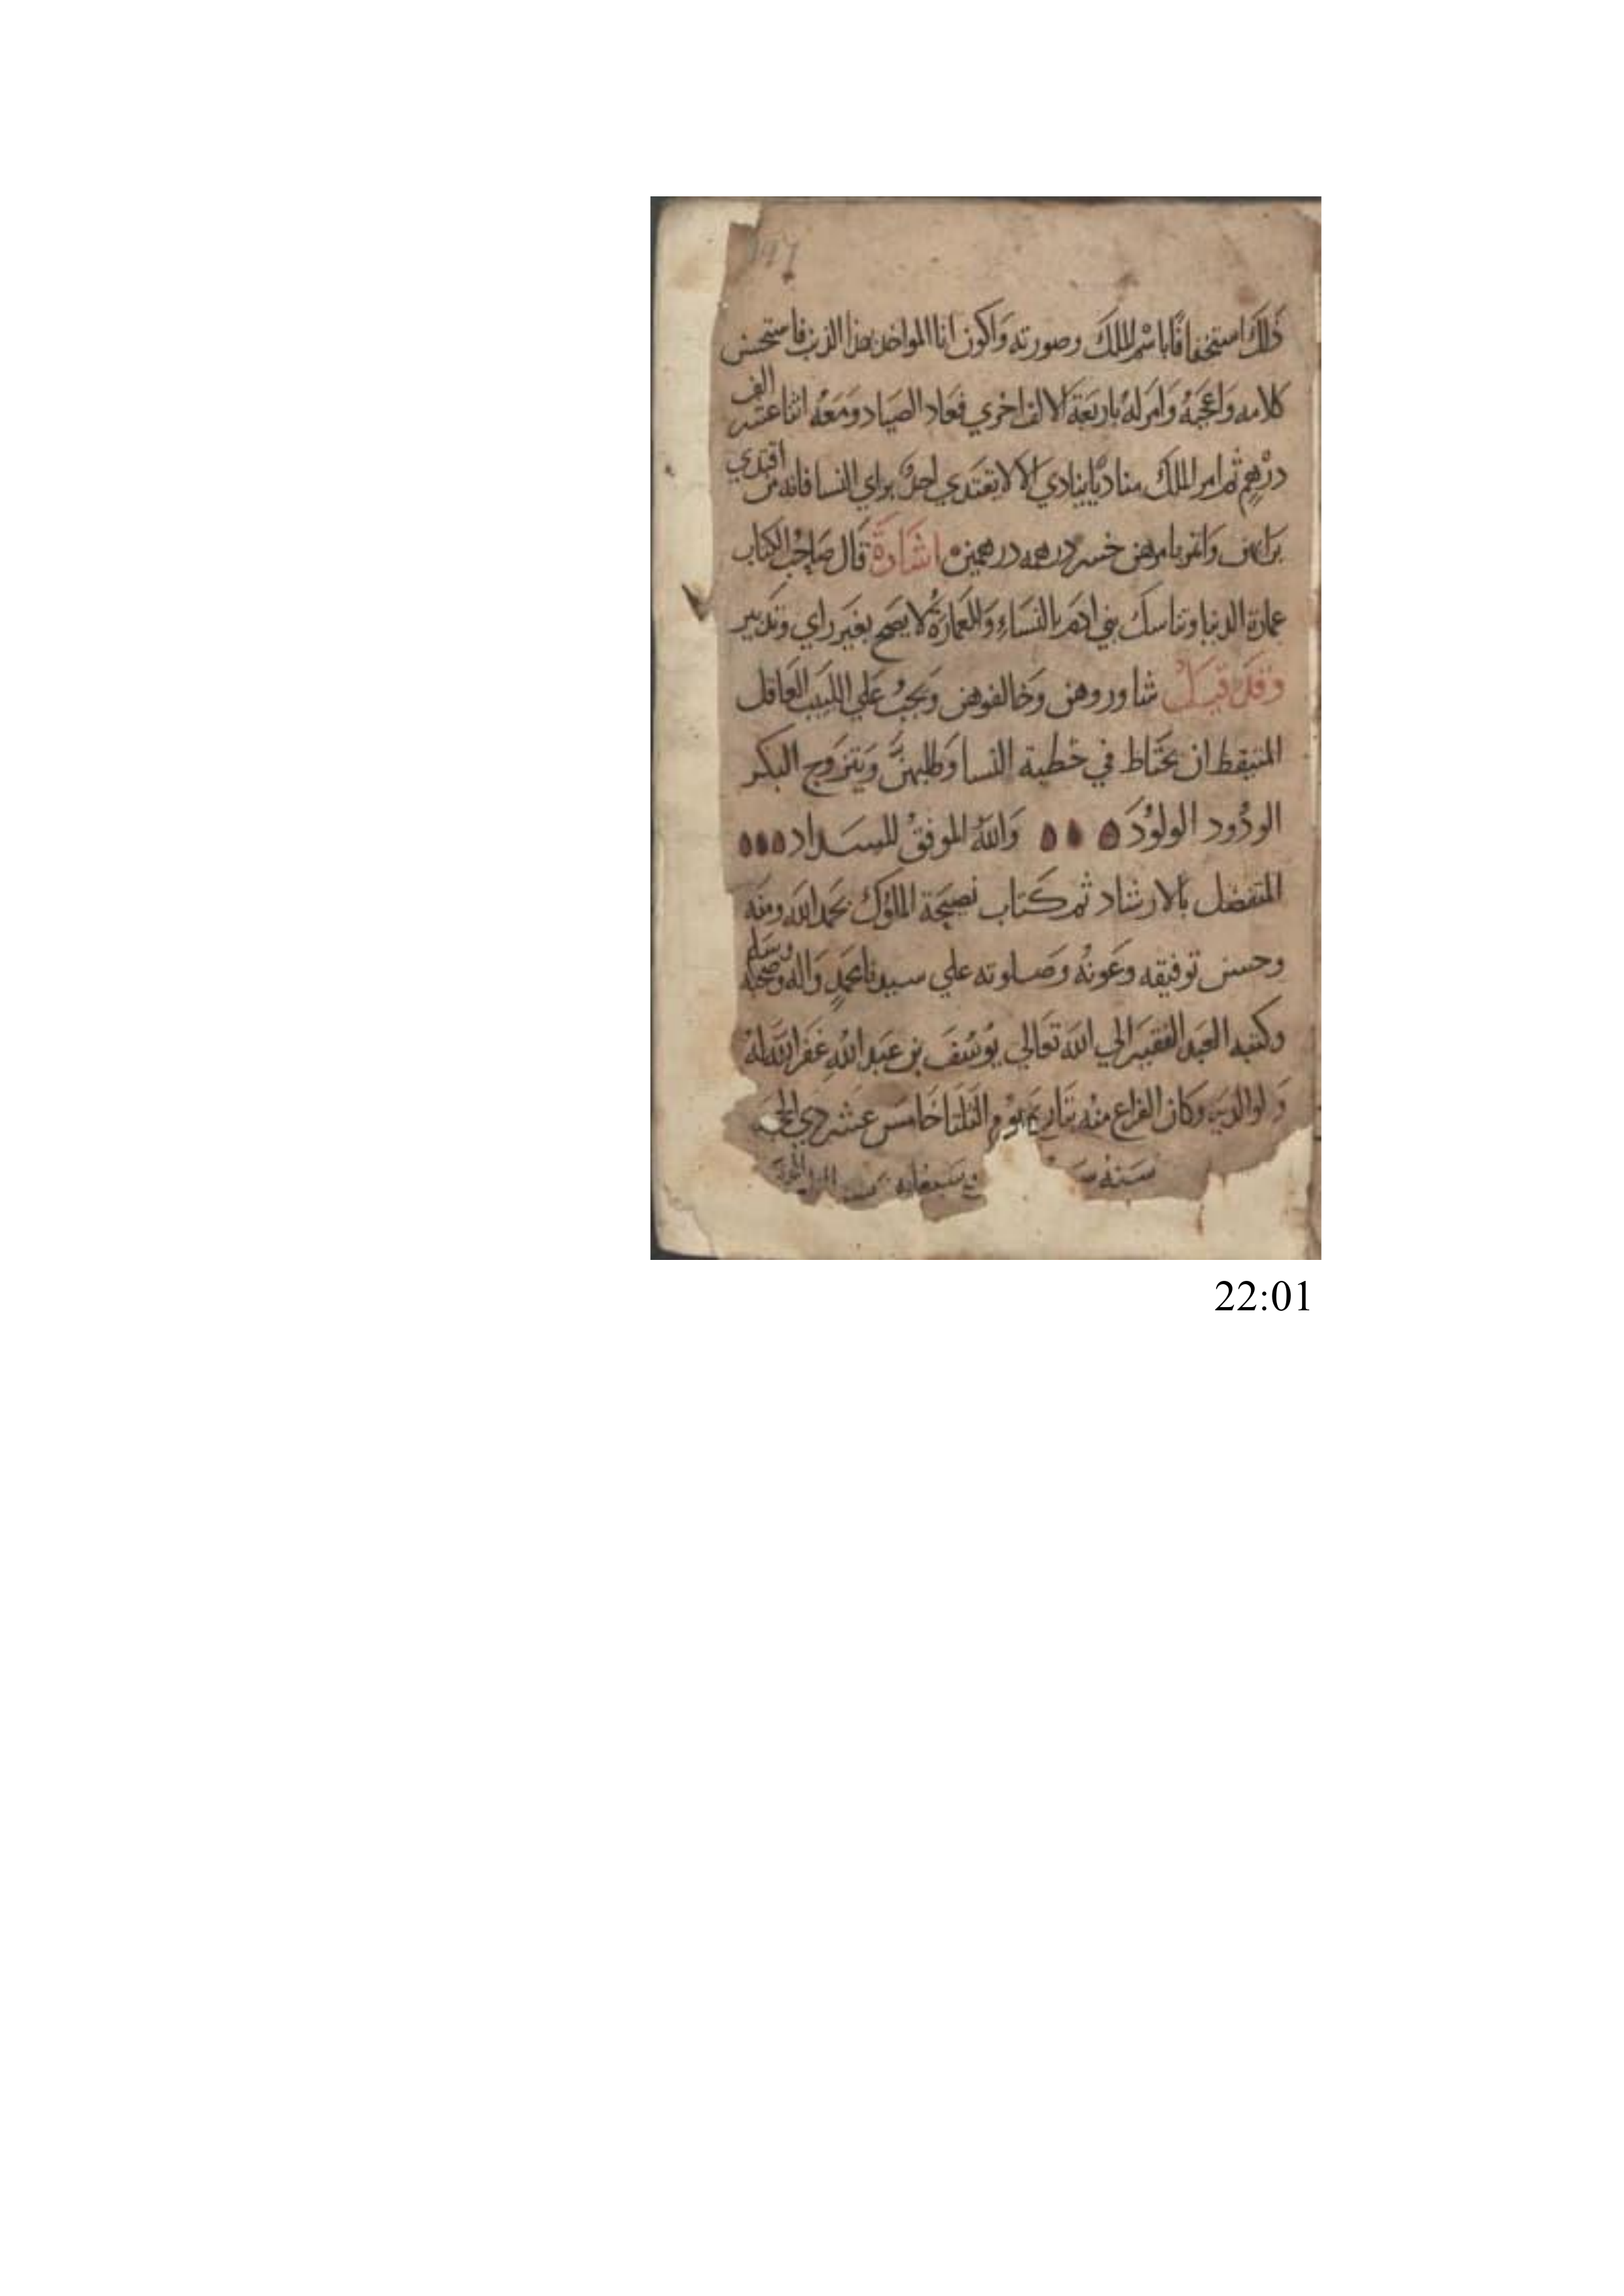 ذلك استخفافا باسم الملك وصورته واكون انا المواخذ بهذا الذنب فاستحسن
كلامه واعجبه وامر له باربعة الالف اخري فعاد الصياد ومعه اثنا عشر الف
درهم ثم امر الملك مناديا ينادي الا لا يقتدي احد براي النسا فانه من اقتدي
برايهن وائتمر بامرهن خسر درهمه درهمين اشارة قال صاحب الكتاب
عمارة الدنيا وتناسل بني ادم بالنساء والعمارة لا يصح بغير راي وتدبير
وقد قيل شاوروهن وخالفوهن ويجب علي اللبيب العاقل
المتيقظ ان يحتاط في خطبة النسا وطلبهن ويتزوج البكر
الودود الولود والله الموفق للسداد
المتفضل بالارشاد تم كتاب نصيحة الملوك بحمد الله ومنه
وحسن توفيقه وعونه وصلوته علي سيدنا محمد واله وصحبه وسلم
وكتبه العبد الفقير الي الله تعالي يوسف بن عبد الله غفر الله له
ولوالديه وكان الفراغ منه بتاريخ يوم الثلثا خامس عشر ذي الحجة
سنة سبعمايه
22:01